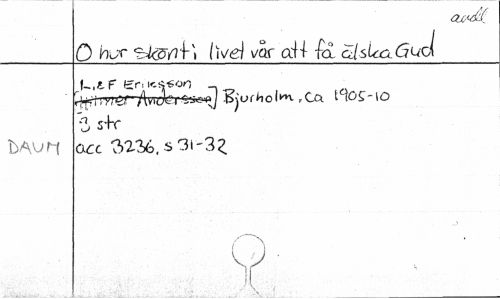 andl
O hur skönt i livet vår att få älska Gud
L.E F Eriksson
Hilmer Andersson] Bjurholm, ca 1905-10
3 str
DAUM acc 3236, s 31-32